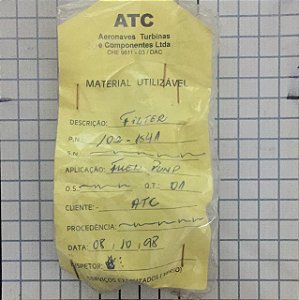 ATC
Aeronaves Turbinas
e Componentes Ltda
CHE 9611 - 03 / DAC
MATERIAL UTILIZÁVEL
DESCRIÇÃO: FILTER
P.N.: 102-154A
S.N.
APLICAÇÃO: FUEL PUMP
O.S. QT: 01
CLIENTE: - ATC
PROCEDÊNCIA:
DATA: 08, 10, 98
INSPETOR: